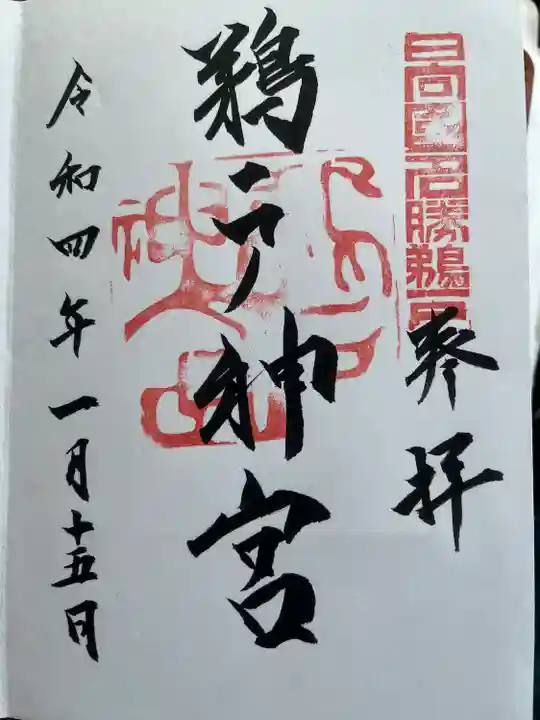 日向国名勝鵜戸
奉拝
鵜戸神宮
令和四年一月十五日